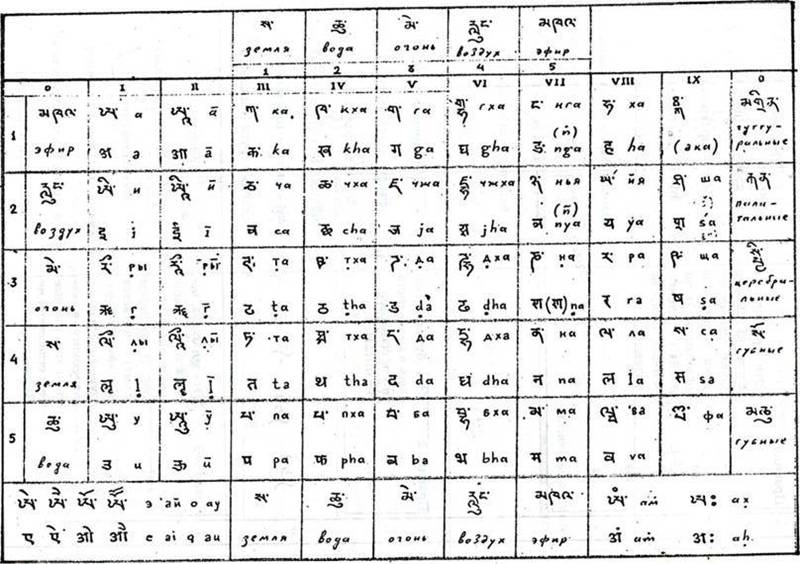 ས་ ཆུ་ མེ་ རླུང་ མཁའ་
земля вода огонь воздух эфир
1 2 3 4 5
0 I II III IV V VI VII VIII IX 0
1 а ā ཀ་ ка ཁ་ кха ག་ га གྷ་ гха ང་ нга ཧ་ ха མགྲིན་
эфир अ a आ ā क ka ख kha ग ga घ gha (ṅ) ङ nga ह ha (эка) гутту-ральные
2 རླུང་ и ӣ ཙ་ ча ཚ་ чха ཛ་ чжа ཛྷ་ чжха ཉ་ нья йя ཤ་ ша རྐན་
воздух इ i ई ī च ca छ cha ज ja झ jha (ñ) ञ nya य ya श śa пала-тальные
3 མེ་ ры ры̄ ཊ་ та ཋ་ тха ཌ་ да ཌྷ་ дха ཎ་ на ར་ ра ཥ་ ша
огонь ऋ ṛ ॠ ṝ ट ṭa ठ ṭha ड ḍa ढ ḍha ण ṇa र ra ष ṣa церебра-льные
4 ས་ лы лы̄ ཏ་ та ཐ་ тха ད་ да དྷ་ дха ན་ на ལ་ ла ས་ са སོ་
земля ऌ ḷ ॡ ḹ त ta थ tha द da ध dha न na ल la स sa губные
5 ཆུ་ у ӯ པ་ па ཕ་ пха བ་ ба བྷ་ бха མ་ ма ва фа མཆུ་
вода उ u ऊ ū प pa फ pha ब ba भ bha म ma व va губные
э ай о ау ས་ ཆུ་ མེ་ རླུང་ མཁའ་ ам ах
ए ऐ ओ औ e ai o au земля вода огонь воздух эфир अं aṁ अः aḥ